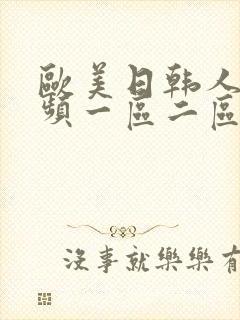 歐美日韩人
頻一區二區
沒事就樂樂有